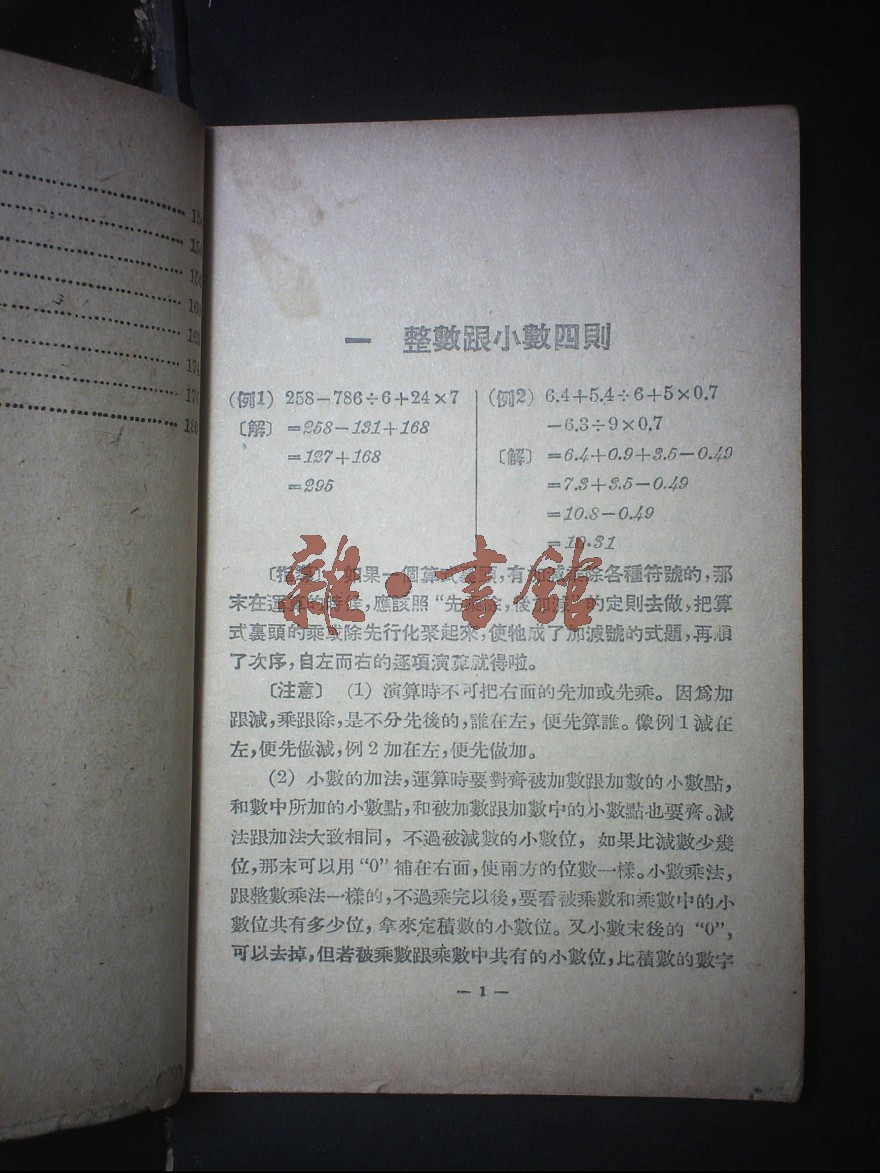 154
163
174
180
一　整數跟小數四則
(例1) 258−786÷6+24×7
〔解〕 =258−131+168
=127+168
=295
(例2) 6.4+5.4÷6+5×0.7
−6.3÷9×0.7
〔解〕 =6.4+0.9+3.5−0.49
=7.3+3.5−0.49
=10.8−0.49
=10.31
雜·書館
〔指導〕 如果一個算式裏頭，有加減乘除各種符號的，那
末在運算的時候，應該照“先乘除，後加減”的定則去做，把算
式裏頭的乘或除先行化聚起來，使牠成了加減號的式題，再順
了次序，自左而右的逐項演算就得啦。
〔注意〕 (1) 演算時不可把右面的先加或先乘。因爲加
跟減，乘跟除，是不分先後的，誰在左，便先算誰。像例1減在
左，便先做減，例2加在左，便先做加。
(2) 小數的加法，運算時要對齊被加數跟加數的小數點，
和數中所加的小數點，和被加數跟加數中的小數點也要齊。減
法跟加法大致相同，不過被減數的小數位，如果比減數少幾
位，那末可以用“0”補在右面，使兩方的位數一樣。小數乘法，
跟整數乘法一樣的，不過乘完以後，要看被乘數和乘數中的小
數位共有多少位，拿來定積數的小數位。又小數末後的“0”，
可以去掉，但若被乘數跟乘數中共有的小數位，比積數的數字
— 1 —